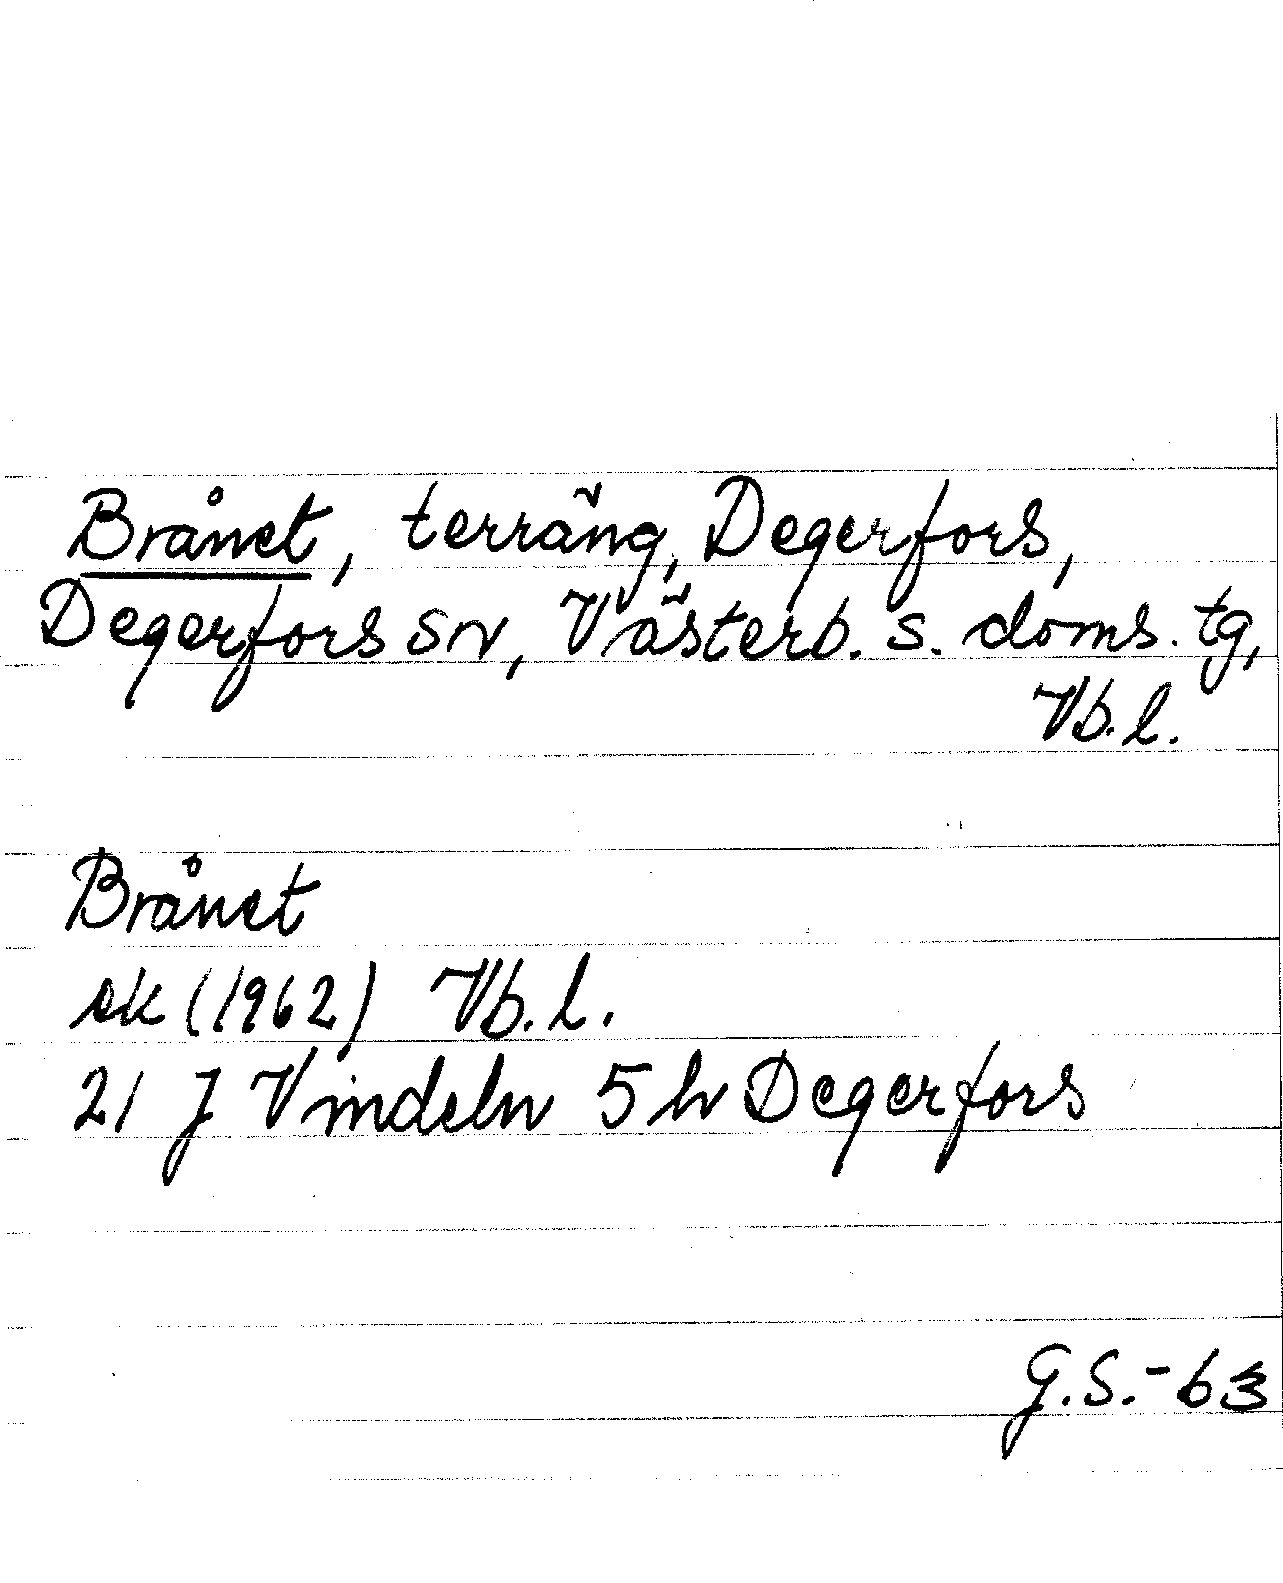 Brånet, terräng, Degerfors,
Degerfors sn, Västerb. s. doms. tg,
Vb. l.
Brånet
ek (1962) Vb. l.
21 J Vindeln 5 h Degerfors
G.S.-63